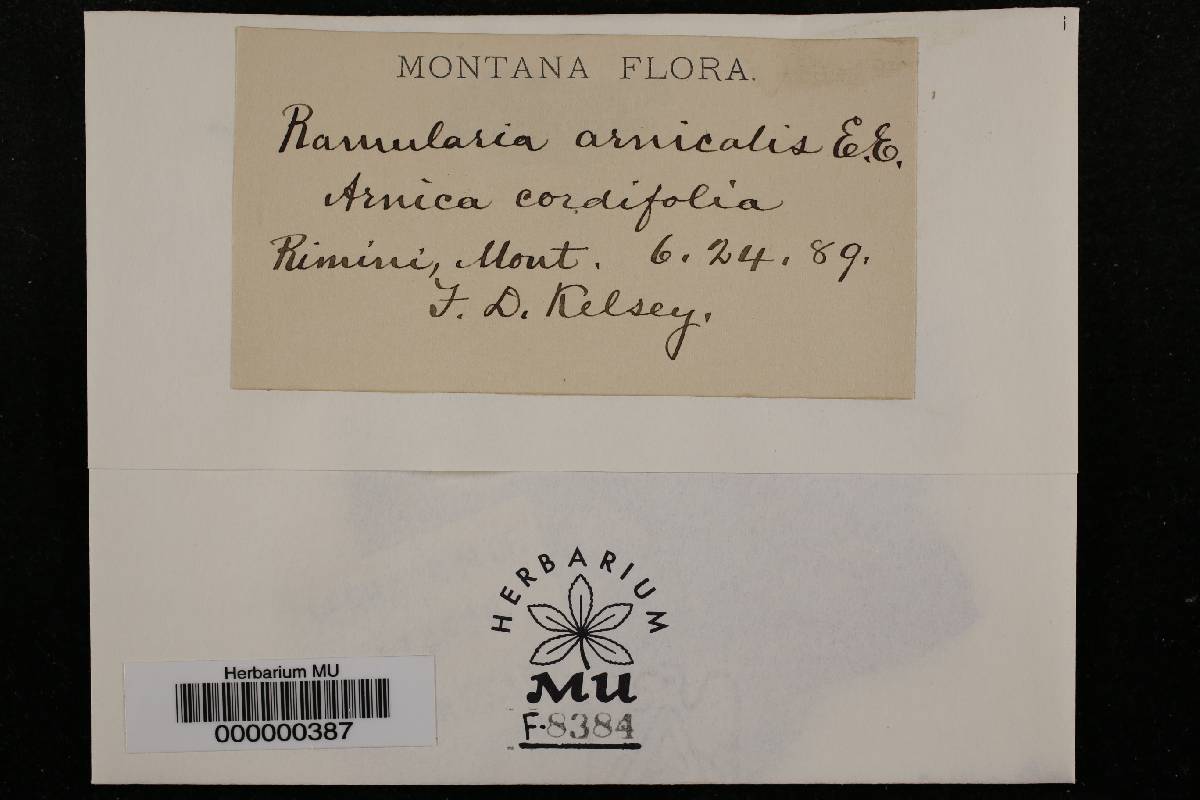 MONTANA FLORA.
Ramularia arnicalis E.E.
Arnica cordifolia
Rimini, Mont. 6.24.89.
F. D. Kelsey.
HERBARIUM
MU
F-8384
Herbarium MU
000000387